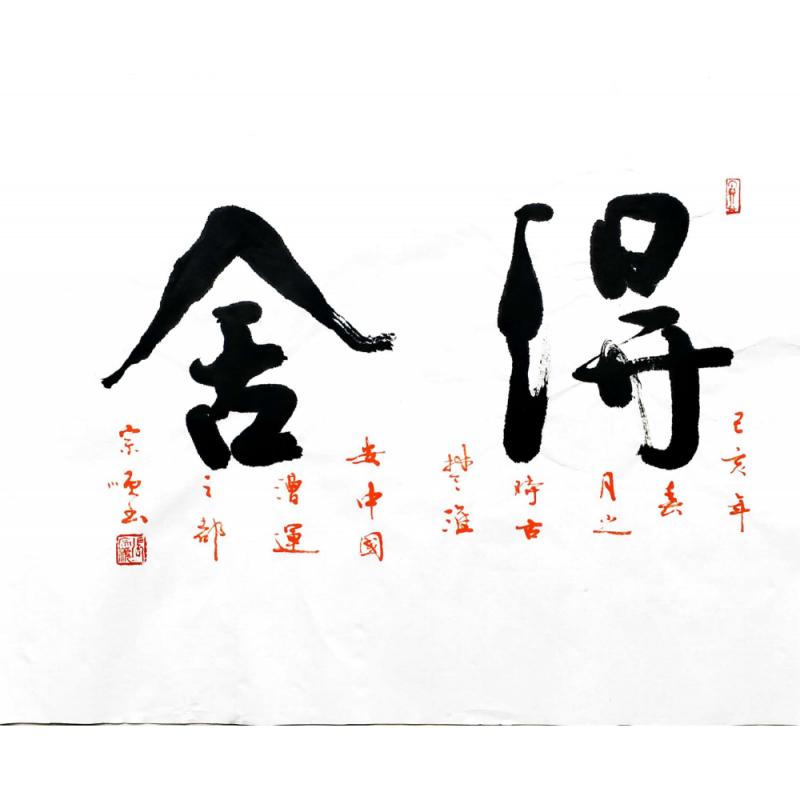 舍得
己亥年
春
月之
時古
楚淮
安中國
漕運
之都
宗順書